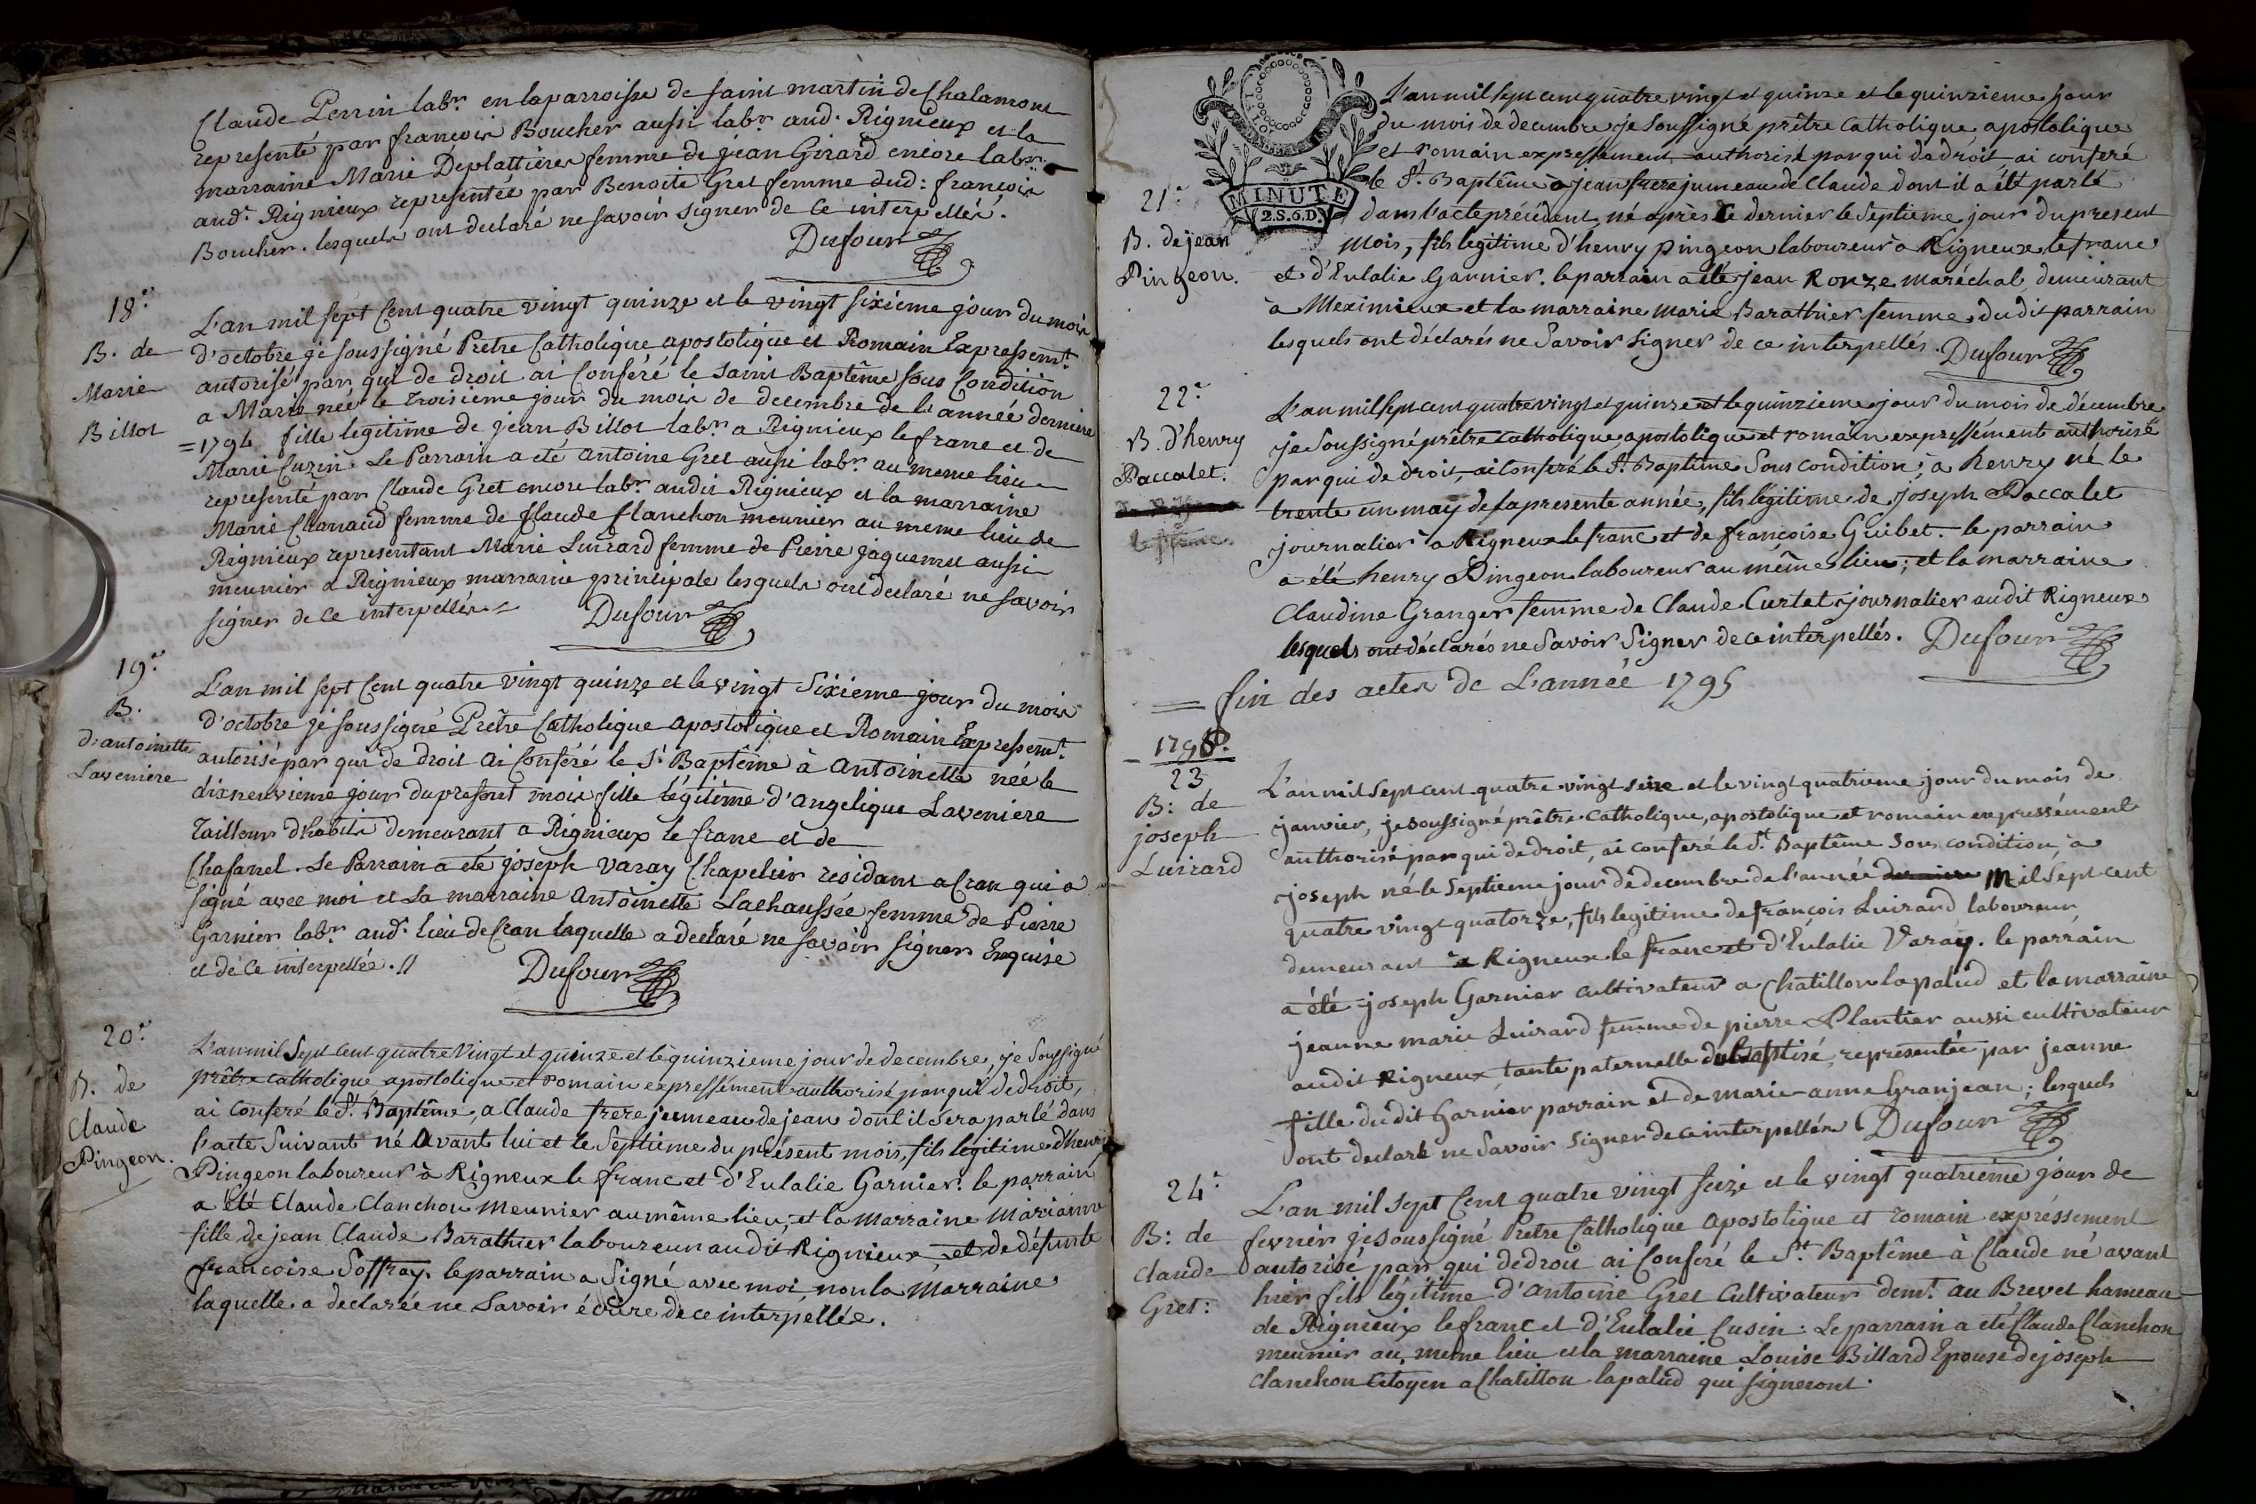 Claude Perrin labr. en laparroisse de saint martin de Chalamont
representé par françois Boucher aussi labr. aud. Rignieux et la
marraine Marie Déplattières femme de jean Girard encore labr.
aud. Rignieux representée par Benoite Gret femme dud: françois
Boucher. lesquels ont declaré ne savoir signer de ce interpellés.
Dufour
18.e
B. de
Marie
Billot
L'an mil sept Cent quatre vingt quinze et le vingt sixième jour du mois
d'octobre je soussigné Pretre Catholique apostolique et Romain Expressemt.
autorisé par qui de droit ai Conféré le saint Baptême sous Condition
a Marie née le troisieme jour du mois de decembre de l'année derniere
=1794 fille legitime de jean Billot labr. a Rignieux le franc et de
Marie Cuzin. Le Parrain a été antoine Gret aussi labr. au meme lieu
representé par Claude Gret encore labr. audit Rignieux et la marraine
Marie Clanaud femme de Claude Clanchon meunier au meme lieu de
Rignieux representant Marie Luirard femme de Pierre jaquemet aussi
meunier a Rignieux marraine principale lesquels ont declaré ne savoir
signer de ce interpellés
Dufour
19.e
B.
d'antoinette
Laveniere
L'an mil sept Cent quatre vingt quinze et le vingt Sixieme jour du mois
d'octobre je soussigné Prêtre Catholique apostolique et Romain Expressemt.
autorisé par qui de droit ai Conféré le St. Baptême à antoinette née le
dixneuvieme jour du present mois fille légitime d'angelique Laveniere
tailleur d'habits demeurant a Rignieux le franc et de
Chafanel. Le Parrain a été joseph varay Chapelier residant a Cran qui a
signé avec moi et la marraine antoinette Lachaussée femme de Pierre
Garnier labr. aud. lieu de Cran laquelle a declaré ne savoir signer Enquise
et de ce interpellée.//
Dufour
20.e
B. de
Claude
Pingeon.
L'an mil Sept Cent quatre Vingt et quinze et le quinzieme jour de decembre, je Soussigné
prêtre catholique apostolique et romain expressément authorisé par qui de droit,
ai conferé le St. Baptême, a Claude frere jumeau de jean dont il sera parlé dans
l'acte Suivant né Avant lui et le Septieme du présent mois, fils legitime d'henri
Pingeon laboureur à Rigneux le franc et d'Eulalie Garnier. le parrain
a été Claude Clanchon Meunier au même lieu, et la Marraine Marianne
fille de jean Claude Barathier laboureur audit Rignieux et de défunte
françoise Soffray. le parrain a Signé avec moi, non la Marraine
laquelle a declarée ne Savoir écrire de ce interpellée.
MINUTE
2.S.6.D.
21.e
B. de jean
Pingeon.
L'an mil sept cent quatre vingt et quinze et le quinzieme jour
du mois de decembre je Soussigné prêtre Catholique apostolique
et romain expressement authorisé par qui de droit ai conferé
le St. Baptême à jean frere jumeau de Claude dont il a été parlé
dans l'acte précédent né après Ce dernier le Septieme jour du present
mois, fils legitime d'henry pingeon laboureur à Rigneux le franc
et d'Eulalie Garnier. le parrain a été jean Ronze maréchal demeurant
à Meximieux et la marraine marie Barathier femme dudit parrain
lesquels ont déclarés ne Savoir Signer de ce interpellés. Dufour
22.e
B. d'henry
Paccalet.
L'an mil Sept cent quatre vingt et quinze et le quinzieme jour du mois de décembre
je Soussigné prêtre catholique apostolique et romain expressément authorisé
par qui de droit, ai Conferé le St. Baptême Sous condition, à henry né le
trente un may de la presente année, fils légitime de joseph Paccalet
journalier à Rigneux le franc et de françoise Guibet. le parrain
a été henry Pingeon laboureur au même lieu; et la marraine
Claudine Granger femme de Claude Curtet journalier audit Rigneux
lesquels ont déclarés ne Savoir Signer de ce interpellés. Dufour
= fin des actes de L'année 1795
1796.
23
B: de
joseph
Luirard
L'an mil Sept cent quatre vingt seize et le vingt quatrieme jour du mois de
janvier, je soussigné prêtre catholique, apostolique et romain expressément
authorisé par qui de droit, ai conferé le St. Baptême sous condition, a
joseph né le Septieme jour de decembre de l'année derniere Mil Sept cent
quatre vingt quatorze, fils legitime de françois Luirard laboureur
demeurant a Rigneux le franc et d'Eulalie Varay. le parrain
a été joseph Garnier cultivateur a Chatillon la palud et la marraine
jeanne marie Luirard femme de pierre Plantier aussi cultivateur
audit Rigneux tante paternelle du baptisé, representée par jeanne
fille dudit Garnier parrain et de marie anne Granjean; lesquels
ont declaré ne Savoir signer de ce interpellés Dufour
24.e
B: de
Claude
Gret:
L'an mil sept Cent quatre vingt seize et le vingt quatrieme jour de
fevrier je soussigné Pretre Catholique apostolique et romain expréssement
autorisé par qui de droit ai Conféré le St. Baptême à Claude né avant
hier fils légitime d'antoine Gret Cultivateur demt. au Brevet hameau
de Rignieux le franc et d'Eulalie Cusin: Le parrain a été Claude Clanchon
meunier au meme lieu et la marraine Louise Billard Epouse de joseph
Clanchon Citoyen a Chatillon lapalud qui signeront.